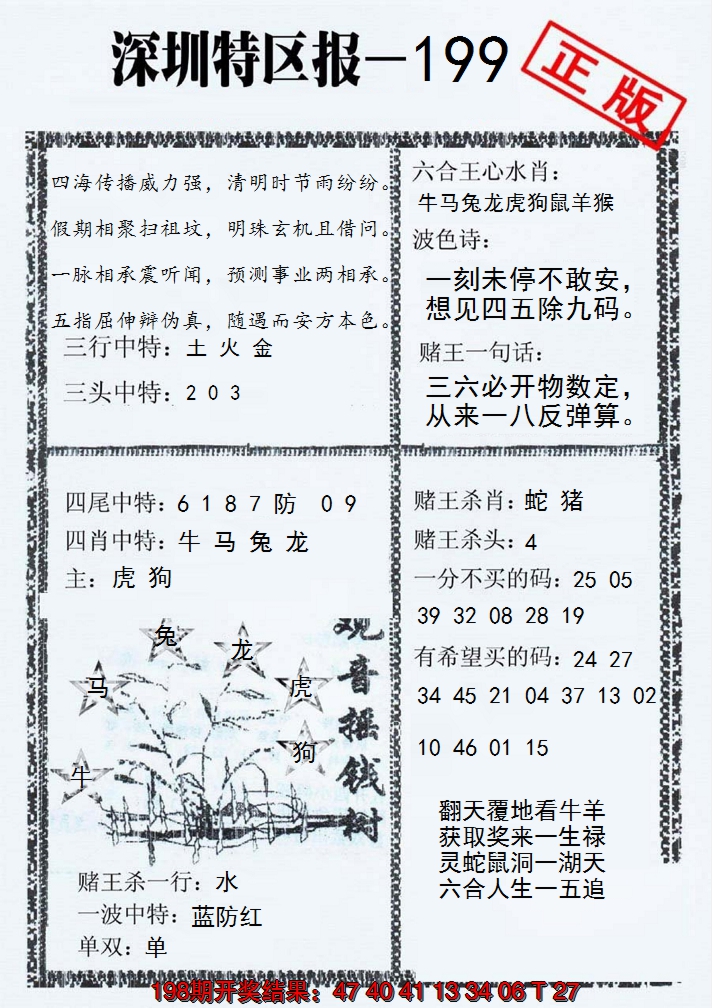 深圳特区报—199
正版
四海传播威力强，清明时节雨纷纷。
假期相聚扫祖坟，明珠玄机且借问。
一脉相承震听闻，预测事业两相承。
五指屈伸辩伪真，随遇而安方本色。
三行中特：土 火 金
三头中特：2 0 3
六合王心水肖：
牛马兔龙虎狗鼠羊猴
波色诗：
一刻未停不敢安，
想见四五除九码。
赌王一句话：
三六必开物数定，
从来一八反弹算。
四尾中特：6 1 8 7 防 0 9
四肖中特：牛 马 兔 龙
主：虎 狗
兔
龙
马
虎
狗
牛
观音摇钱树
赌王杀一行：水
一波中特：蓝防红
单双：单
赌王杀肖：蛇 猪
赌王杀头：4
一分不买的码：25 05
39 32 08 28 19
有希望买的码：24 27
34 45 21 04 37 13 02
10 46 01 15
翻天覆地看牛羊
获取奖来一生禄
灵蛇鼠洞一湖天
六合人生一五追
198期开奖结果：47 40 41 13 34 06 T 27